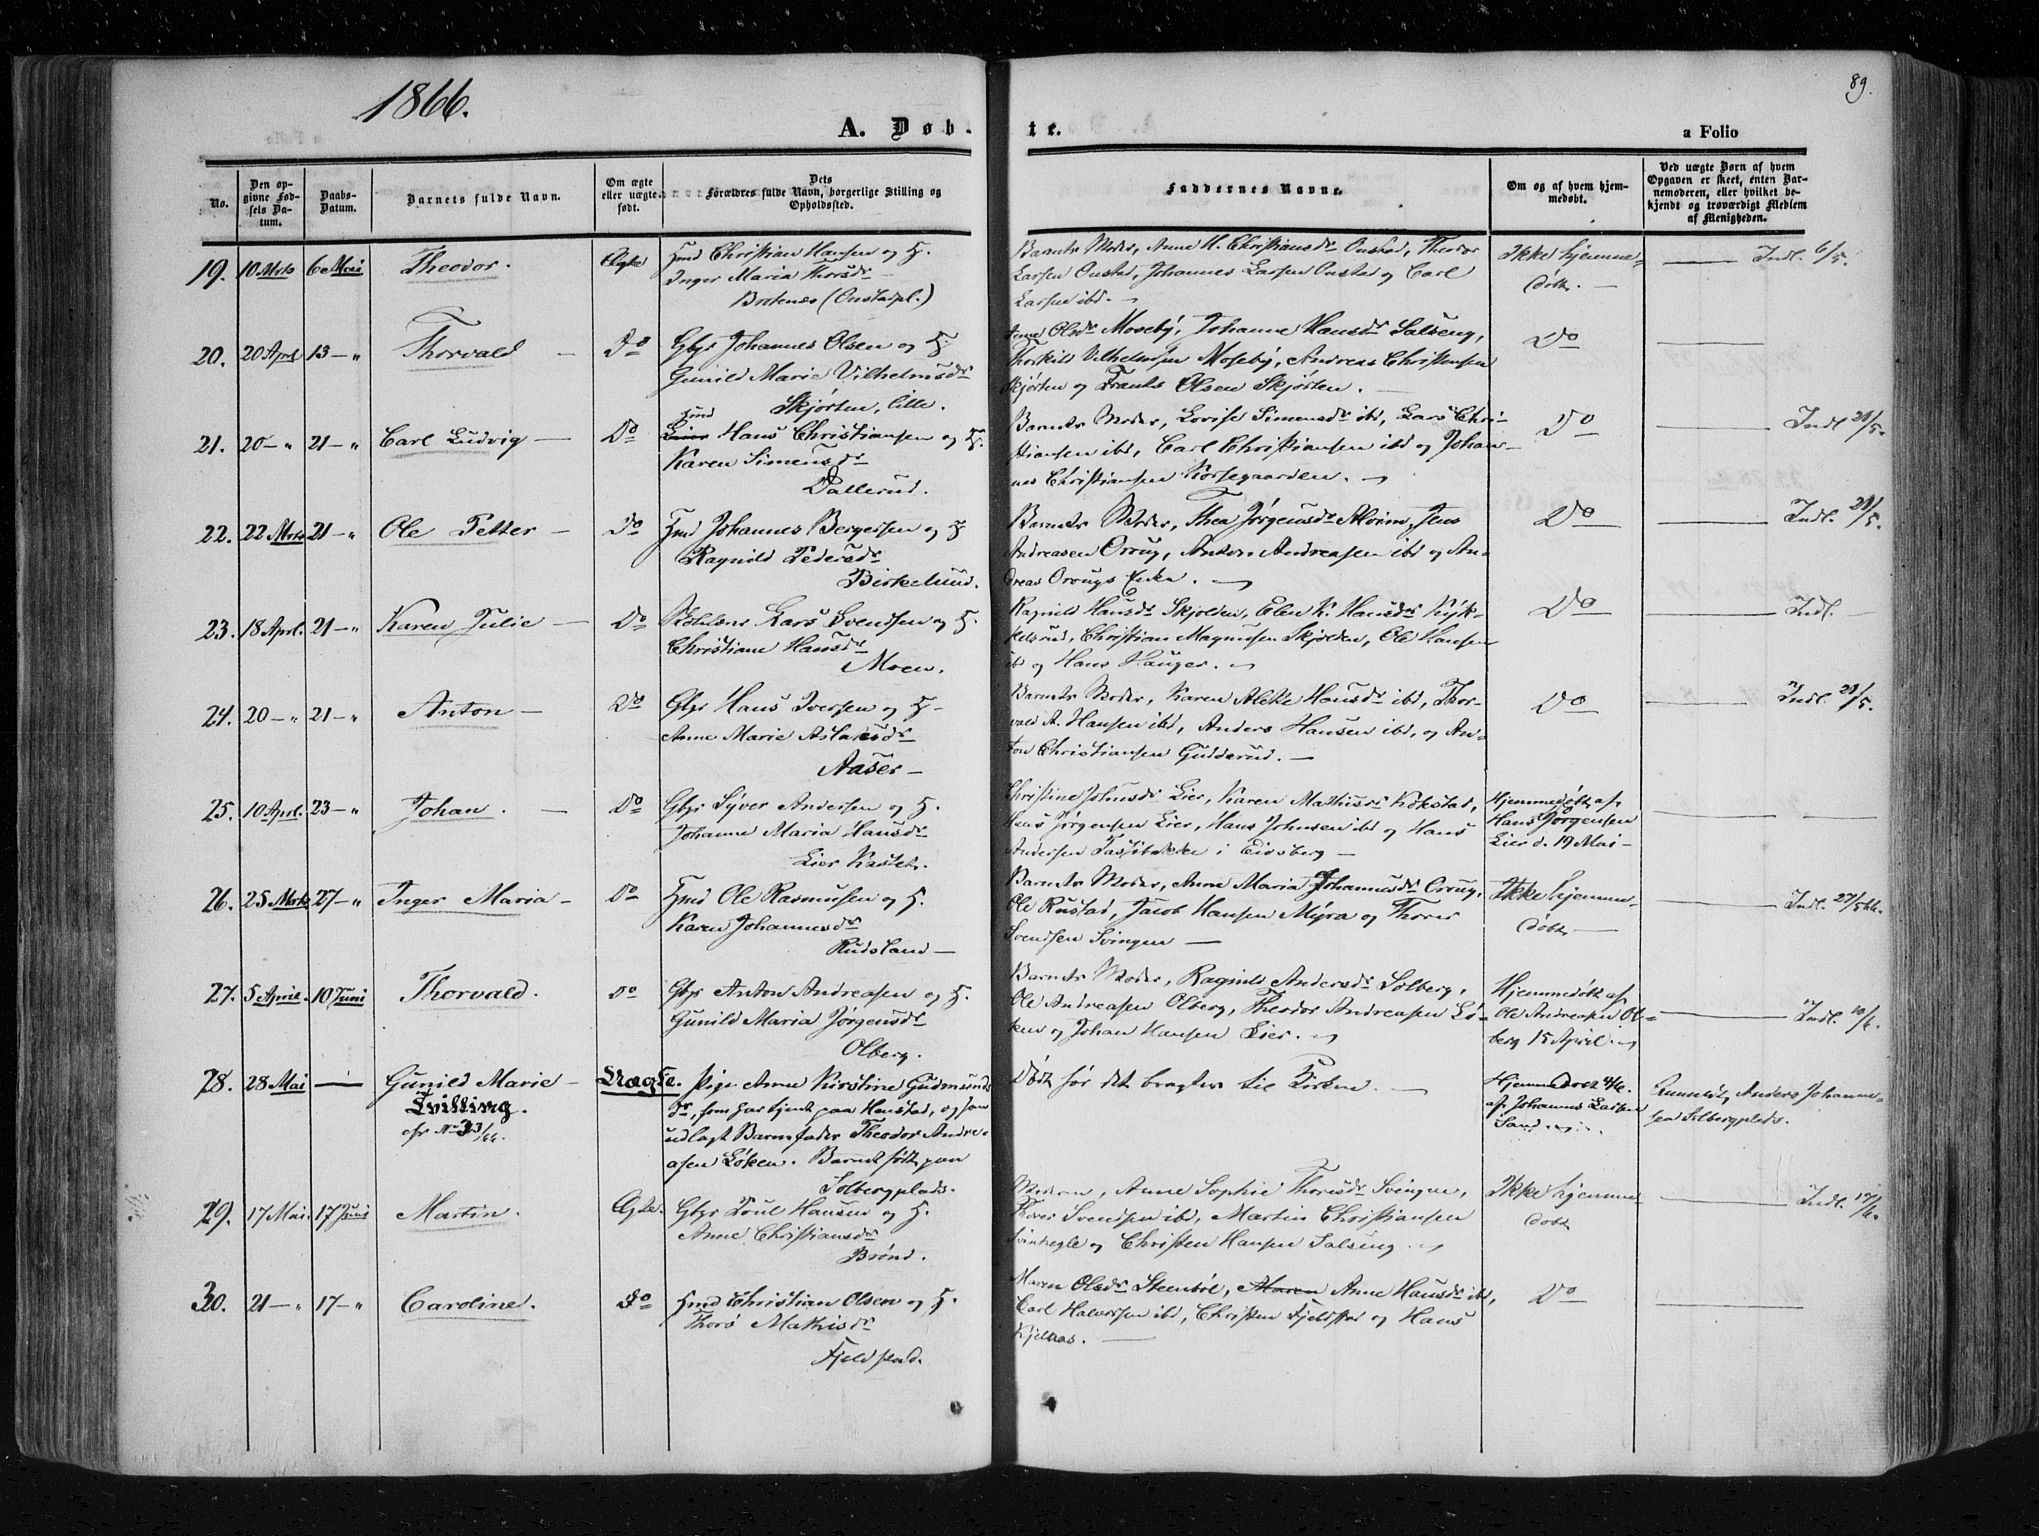 1866.
89.
A. Døb-
te.
a Folio
No.
Den op-
givne Fød-
sels Da-
tum.
Daabs-
Datum.
Barnets fulde Navn.
Om ægte
eller uægte
født.
Dets
Forældres fulde Navn, borgerlige Stilling og
Opholdssted.
Faddernes Navne.
Om og af hvem hjem-
medøbt.
Ved uægte Børn af hvem
Opgaven er skeet, enten Bar-
nemoderen, eller hvilket be-
kjendt og troværdigt Medlem
af Menigheden.
19. 10 Mrts 6 Mai Theodor. Ægte Hmd Christian Hansen og H.
Inger Maria Thorsdr
Bratenes (Onstadpl.)
Barnets Moder, Anne M. Christiansdr Onstad, Theodor
Larsen Onstad, Johannes Larsen Onstad og Carl
Larsen ibd.
Ikke hjemme-
døbt.
Indl. 6/5.
20. 20 Aprl 13 — " Thorvald — Do Gbgr Johannes Olsen og H.
Gunild Marie Vilhelmsdr
Skjørten, lille.
Anne Olsdr Moseby, Johanne Hansdr Salseng,
Thorkild Vilhelmsen Moseby, Andreas Christensen
Skjørten og Frants Olsen Skjørten.
Do
21. 20 — " 21 — " Carl Ludvig — Do
Hmd
Hans Christiansen og H.
Karen Simensdr
Dallerud.
Barnets Moder, Lovise Simensdr ibd, Lars Chri-
stiansen ibd, Carl Christiansen ibd og Johan-
nes Christiansen Korsegaarden.
Do
Indl 21/5.
22. 22 Mrts 21 — " Ole Petter — Do Hmd Johannes Bergersen og H
Ragnild Pedersdr
Birkelund.
Barnets Moder, Thea Jørgensdr Morim, Jens
Andreasen Orrug, Anton Andreasen ibd og An-
dreas Orrugs Enke.
Do
Indl. 21/5.
23. 18 Aprl. 21 — " Karen Julie — Do Lars Svendsen og H.
Christiane Hansdr
Moen.
Ragnild Hansdr Skjolden, Elen K. Hansdr Kyk-
kelsrud, Christian Magnusen Skjolden, Ole Hansen
ibd og Hans Hauger.
Do
Indl. —
24. 20 — " 21 — " Anton — Do Gbgr Hans Iversen og H —
Anne Marie Aslaksdr
Aaser —
Barnets Moder, Karen Alette Hansdr ibd, Thor-
vald A. Hansen ibd, Anders Hansen ibd, og An-
ton Christiansen Gudderud. —
Do
Indl. 21/5.
25. 10 Aprl. 23 — " Johan. — Do Gbgr Syver Andersen og H.
Johanne Maria Hansdr
Lier Kastet.
Christine Johnsdr Lier, Karen Mathisdr Kokstad,
Hans Jørgensen Lier, Hans Johnsen ibd og Hans
Andersen i Eidsberg —
Hjemmedøbt af
Hans Jørgensen
Lier d. 19 Mai —
26. 25 Mrts 27 — " Inger Maria — Do Hmd Ole Rasmusen og H.
Karen Johannesdr
Rudsland —
Barnets Moder, Anne Maria Johannesdr Orrug,
Ole Rustad, Jacob Hansen Myra og Thorer
Svendsen Svingen —
Ikke hjemme-
døbt
Indl. 27/5 66.
27. 5 April. 10 Juni Thorvald. Do Gbgr Anton Andreasen og H.
Gunild Maria Jørgensdr
Olberg.
Barnets Moder, Ragnild Andersdr Solberg,
Ole Andreasen Olberg, Theodor Andreasen Lø-
ken og Johan Hansen Lier.
Hjemmedøbt af
Ole Andreasen Ol-
berg 15 April.
Indl. 10/6.
28. 28 Mai — Gunild Marie — Uægte. Pige Anne Kirstine Gudmunds-
Tvilling.
cfr No 33/66.
dr, som har tjent paa Henstad, og som
udlagt Barnefader Theodor Andre-
asen Løken. Barnet født paa
Solbergplads.
Dødt før det bragtes til Kirken. —
Hjemmedøbt
af Johannes Larsen
Sand
Anmeldt, Anders Johanne-
sen Solbergplads.
29. 17 Mai. 17 Juni Martin. Ægte. Gbgr Poul Hansen og H.
Anne Christiansdr
Brønd.
Moderen, Anne Sophie Thoresdr Svingen,
Thorer Svendsen ibd, Martin Christiansen
og Christen Hansen Salseng.
Ikke hjemme
døbt
Indl. 17/6.
30. 21 — " 17 — " Caroline. Do Hmd Christian Olsen og H.
Thorø Mathisdr
Fjeldstad.
Maren Olsdr Steenbøl, Maren Anne Hansdr ibd,
Carl Halvorsen ibd, Christen Fjeldstad og Hans
Kjelaas. —
Do